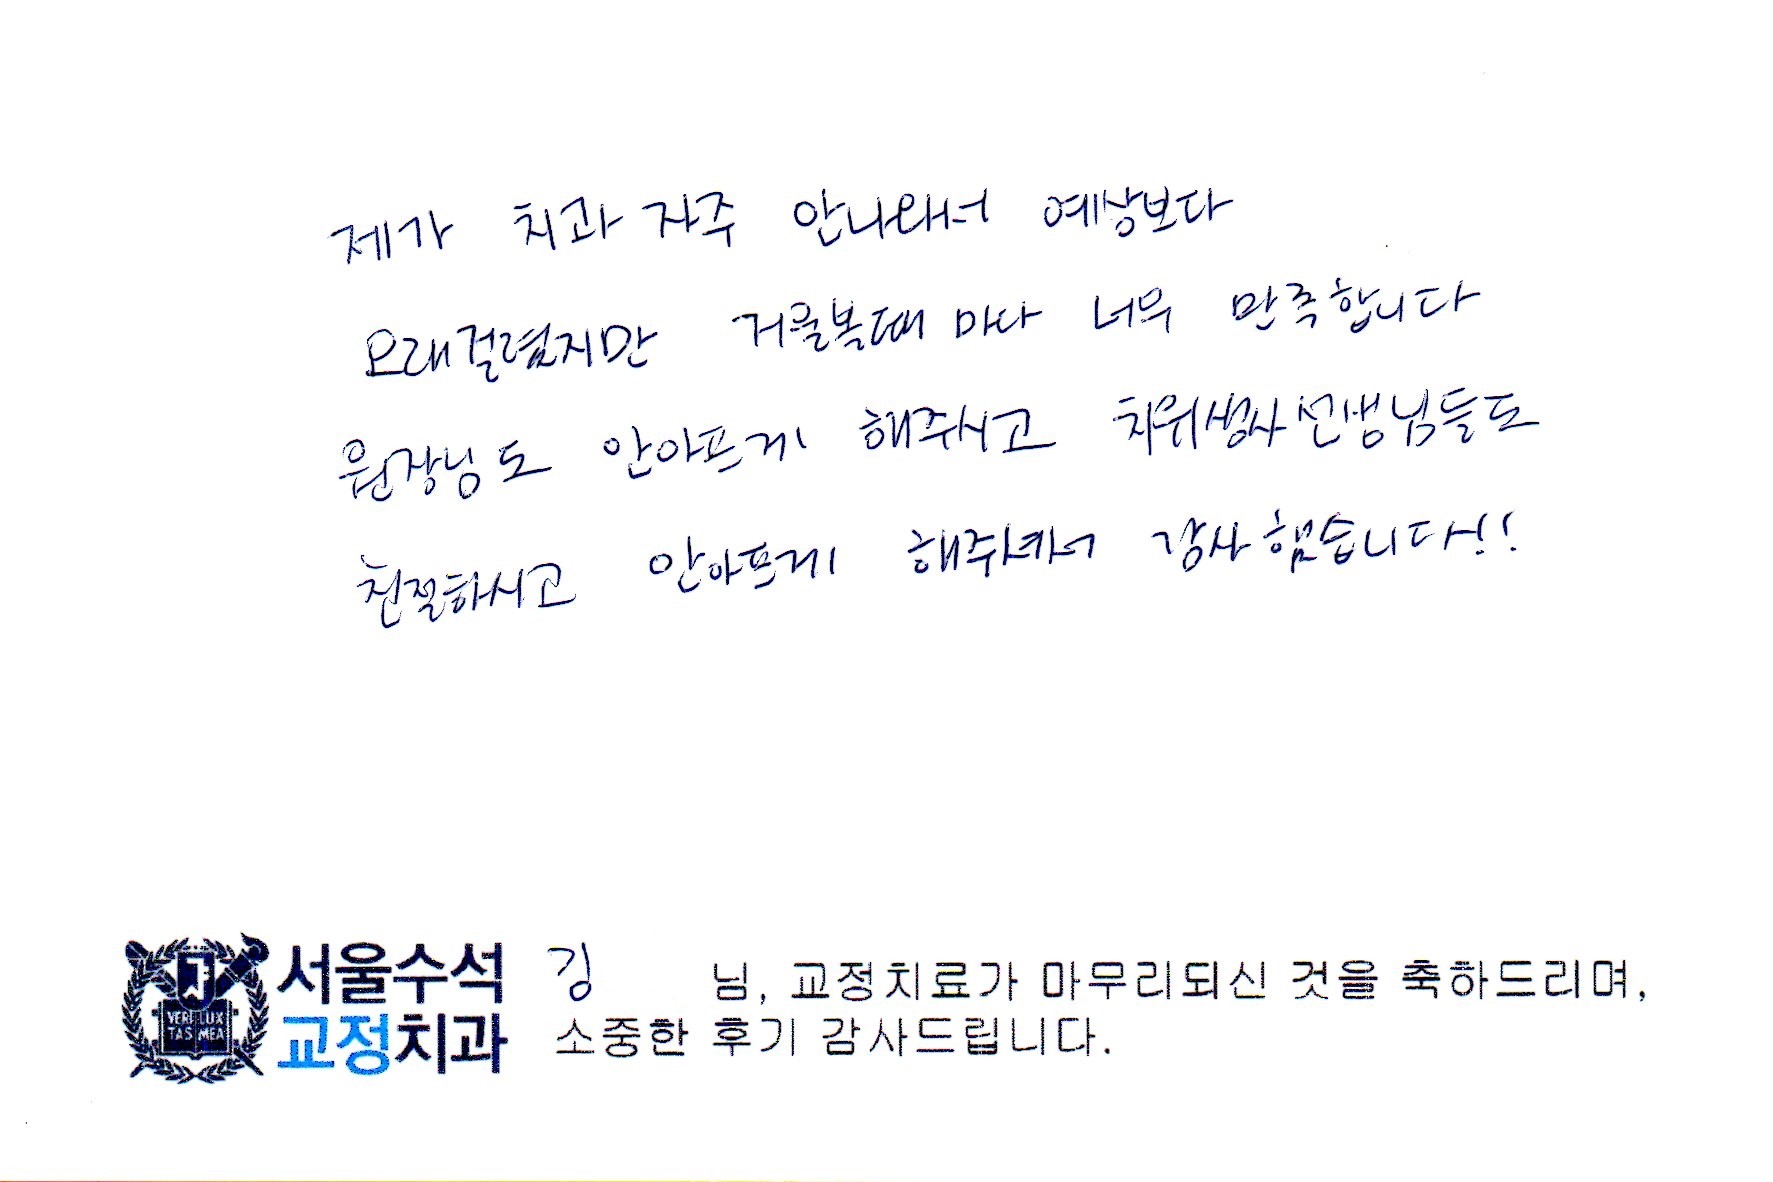 제가 치과 자주 안나와서 예상보다
오래걸렸지만 거울볼때 마다 너무 만족합니다
원장님도 안아프게 해주시고 치위생사선생님들도
친절하시고 안아프게 해주셔서 감사했습니다!!
VERI LUX
TAS MEA
서울수석
교정치과
김 님, 교정치료가 마무리되신 것을 축하드리며,
소중한 후기 감사드립니다.